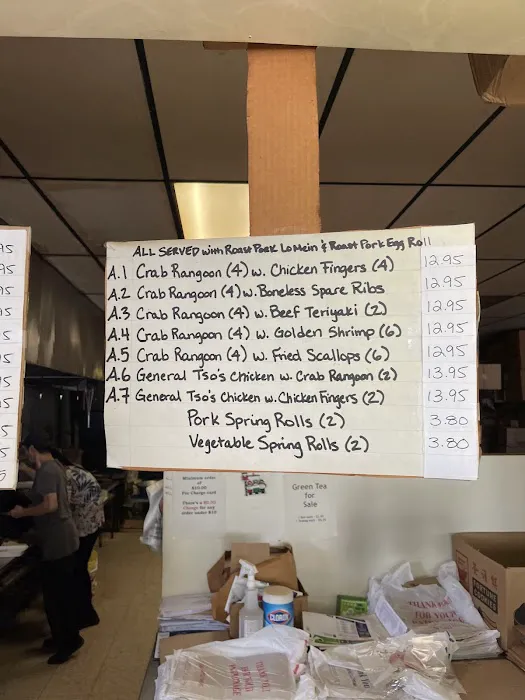 ALL SERVED with Roast Pork Lo Mein & Roast Pork Egg Roll
A.1 Crab Rangoon (4) w. Chicken Fingers (4) 12.95
A.2 Crab Rangoon (4) w. Boneless Spare Ribs 12.95
A.3 Crab Rangoon (4) w. Beef Teriyaki (2) 12.95
A.4 Crab Rangoon (4) w. Golden Shrimp (6) 12.95
A.5 Crab Rangoon (4) w. Fried Scallops (6) 12.95
A.6 General Tso's Chicken w. Crab Rangoon (2) 13.95
A.7 General Tso's Chicken w. Chicken Fingers (2) 13.95
Pork Spring Rolls (2) 3.80
Vegetable Spring Rolls (2) 3.80
Minimum order
of
$10.00
Per Charge card
Charge for any
order under $10
Green Tea
for
Sale
CLOROX
THANK YOU
FOR YOUR